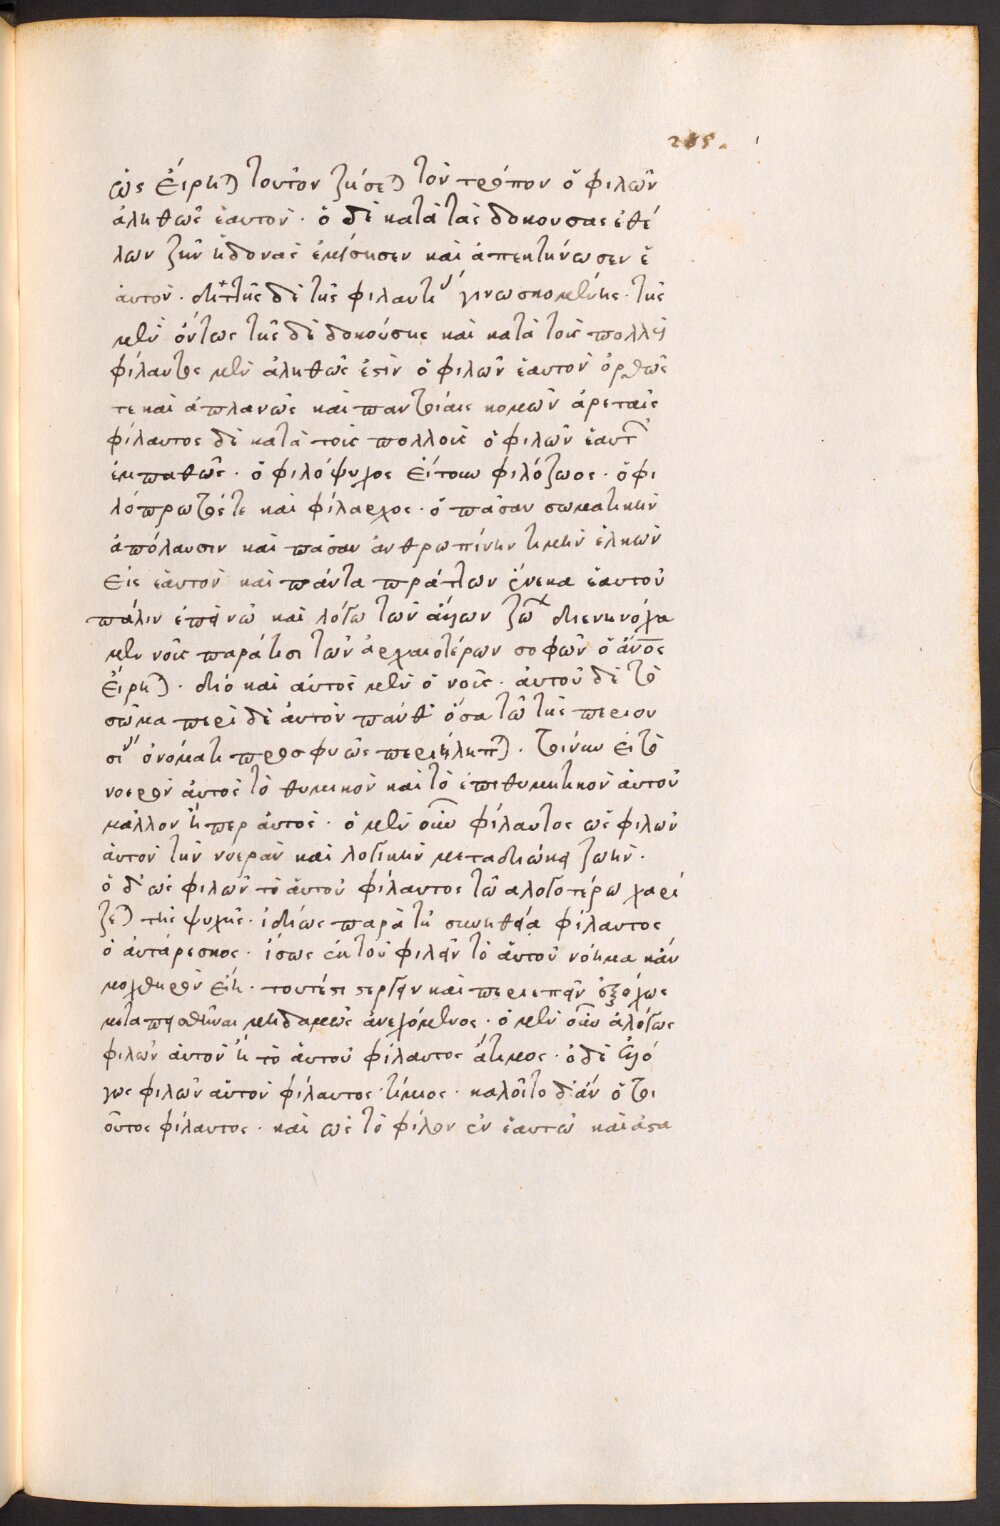 205.
ὡς εἴρηται τοῦτον ζήσεται τὸν τρόπον ὁ φιλῶν
ἀληθῶς ἑαυτόν · ὁ δὲ κατὰ τὰς δοκούσας ἐθέ
λων ζῆν ἡδονὰς ἐμίσησεν καὶ ἀπεκτήνωσεν ἑ
αυτόν · διττῆς δὲ τῆς φιλαυτίας γινωσκομένης · τῆς
μὲν ὄντως τῆς δὲ δοκούσης καὶ κατὰ τοὺς πολλοὺς
φίλαυτος μὲν ἀληθῶς ἐστὶν ὁ φιλῶν ἑαυτὸν ὀρθῶς
τε καὶ ἀπλανῶς καὶ παντοίαις κομῶν ἀρεταῖς
φίλαυτος δὲ κατὰ τοὺς πολλοὺς ὁ φιλῶν ἑαυτὸν
ἐμπαθῶς · ὁ φιλόψυχος εἴτουν φιλόζωος · ὁ φι
λόπρωτός τε καὶ φίλαρχος · ὁ πᾶσαν σωματικὴν
ἀπόλαυσιν καὶ πᾶσαν ἀνθρωπίνην τιμὴν ἕλκων
εἰς ἑαυτὸν καὶ πάντα πράττων ἕνεκα ἑαυτοῦ
πάλιν ἐπεὶ νῷ καὶ λόγῳ τῶν ἄλλων ζώων διενηνόχα
μεν νοῦς παρά τισι τῶν ἀρχαιοτέρων σοφῶν ὁ ἄνος
εἴρηται · διὸ καὶ αὐτὸς μὲν ὁ νοῦς · αὐτοῦ δὲ τὸ
σῶμα περὶ δὲ αὐτὸν πάνθ' ὅσα τῷ τῆς περιου
σίας ὀνόματι προσφυῶς περιείληπται · τοίνυν εἰ τὸ
νοερὸν αὐτὸς τὸ θυμικὸν καὶ τὸ ἐπιθυμητικὸν αὐτοῦ
μᾶλλον ἤπερ αὐτός · ὁ μὲν οὖν φίλαυτος ὡς φιλῶν
αὐτὸν τὴν νοερὰν καὶ λογικὴν μεταδιώκει ζωήν ·
ὁ δ' ὡς φιλῶν τὸ αὐτοῦ φίλαυτος τῷ ἀλογοτέρῳ χαρί
ζεται τῆς ψυχῆς · ἰδίως παρὰ τῇ συνηθείᾳ φίλαυτος
ὁ αὐτάρεσκος · ἴσως ἐκ τοῦ φιλεῖν τὸ αὐτοῦ νόημα κἂν
μοχθηρὸν εἴη · τουτέστι στέργειν καὶ περιέπειν ἐξόχως
μεταπεισθῆναι μηδαμῶς ἀνεχόμενος · ὁ μὲν οὖν ἀλόγως
φιλῶν αὑτὸν ἢ τὸ αὐτοῦ φίλαυτος ἄτιμος · ὁ δὲ εὐλό
γως φιλῶν αὑτὸν φίλαυτος τίμιος · καλοῖτο δ' ἂν ὁ τοι
οῦτος φίλαυτος · καὶ ὡς τὸ φίλον ἐν ἑαυτῷ καὶ ἀστα